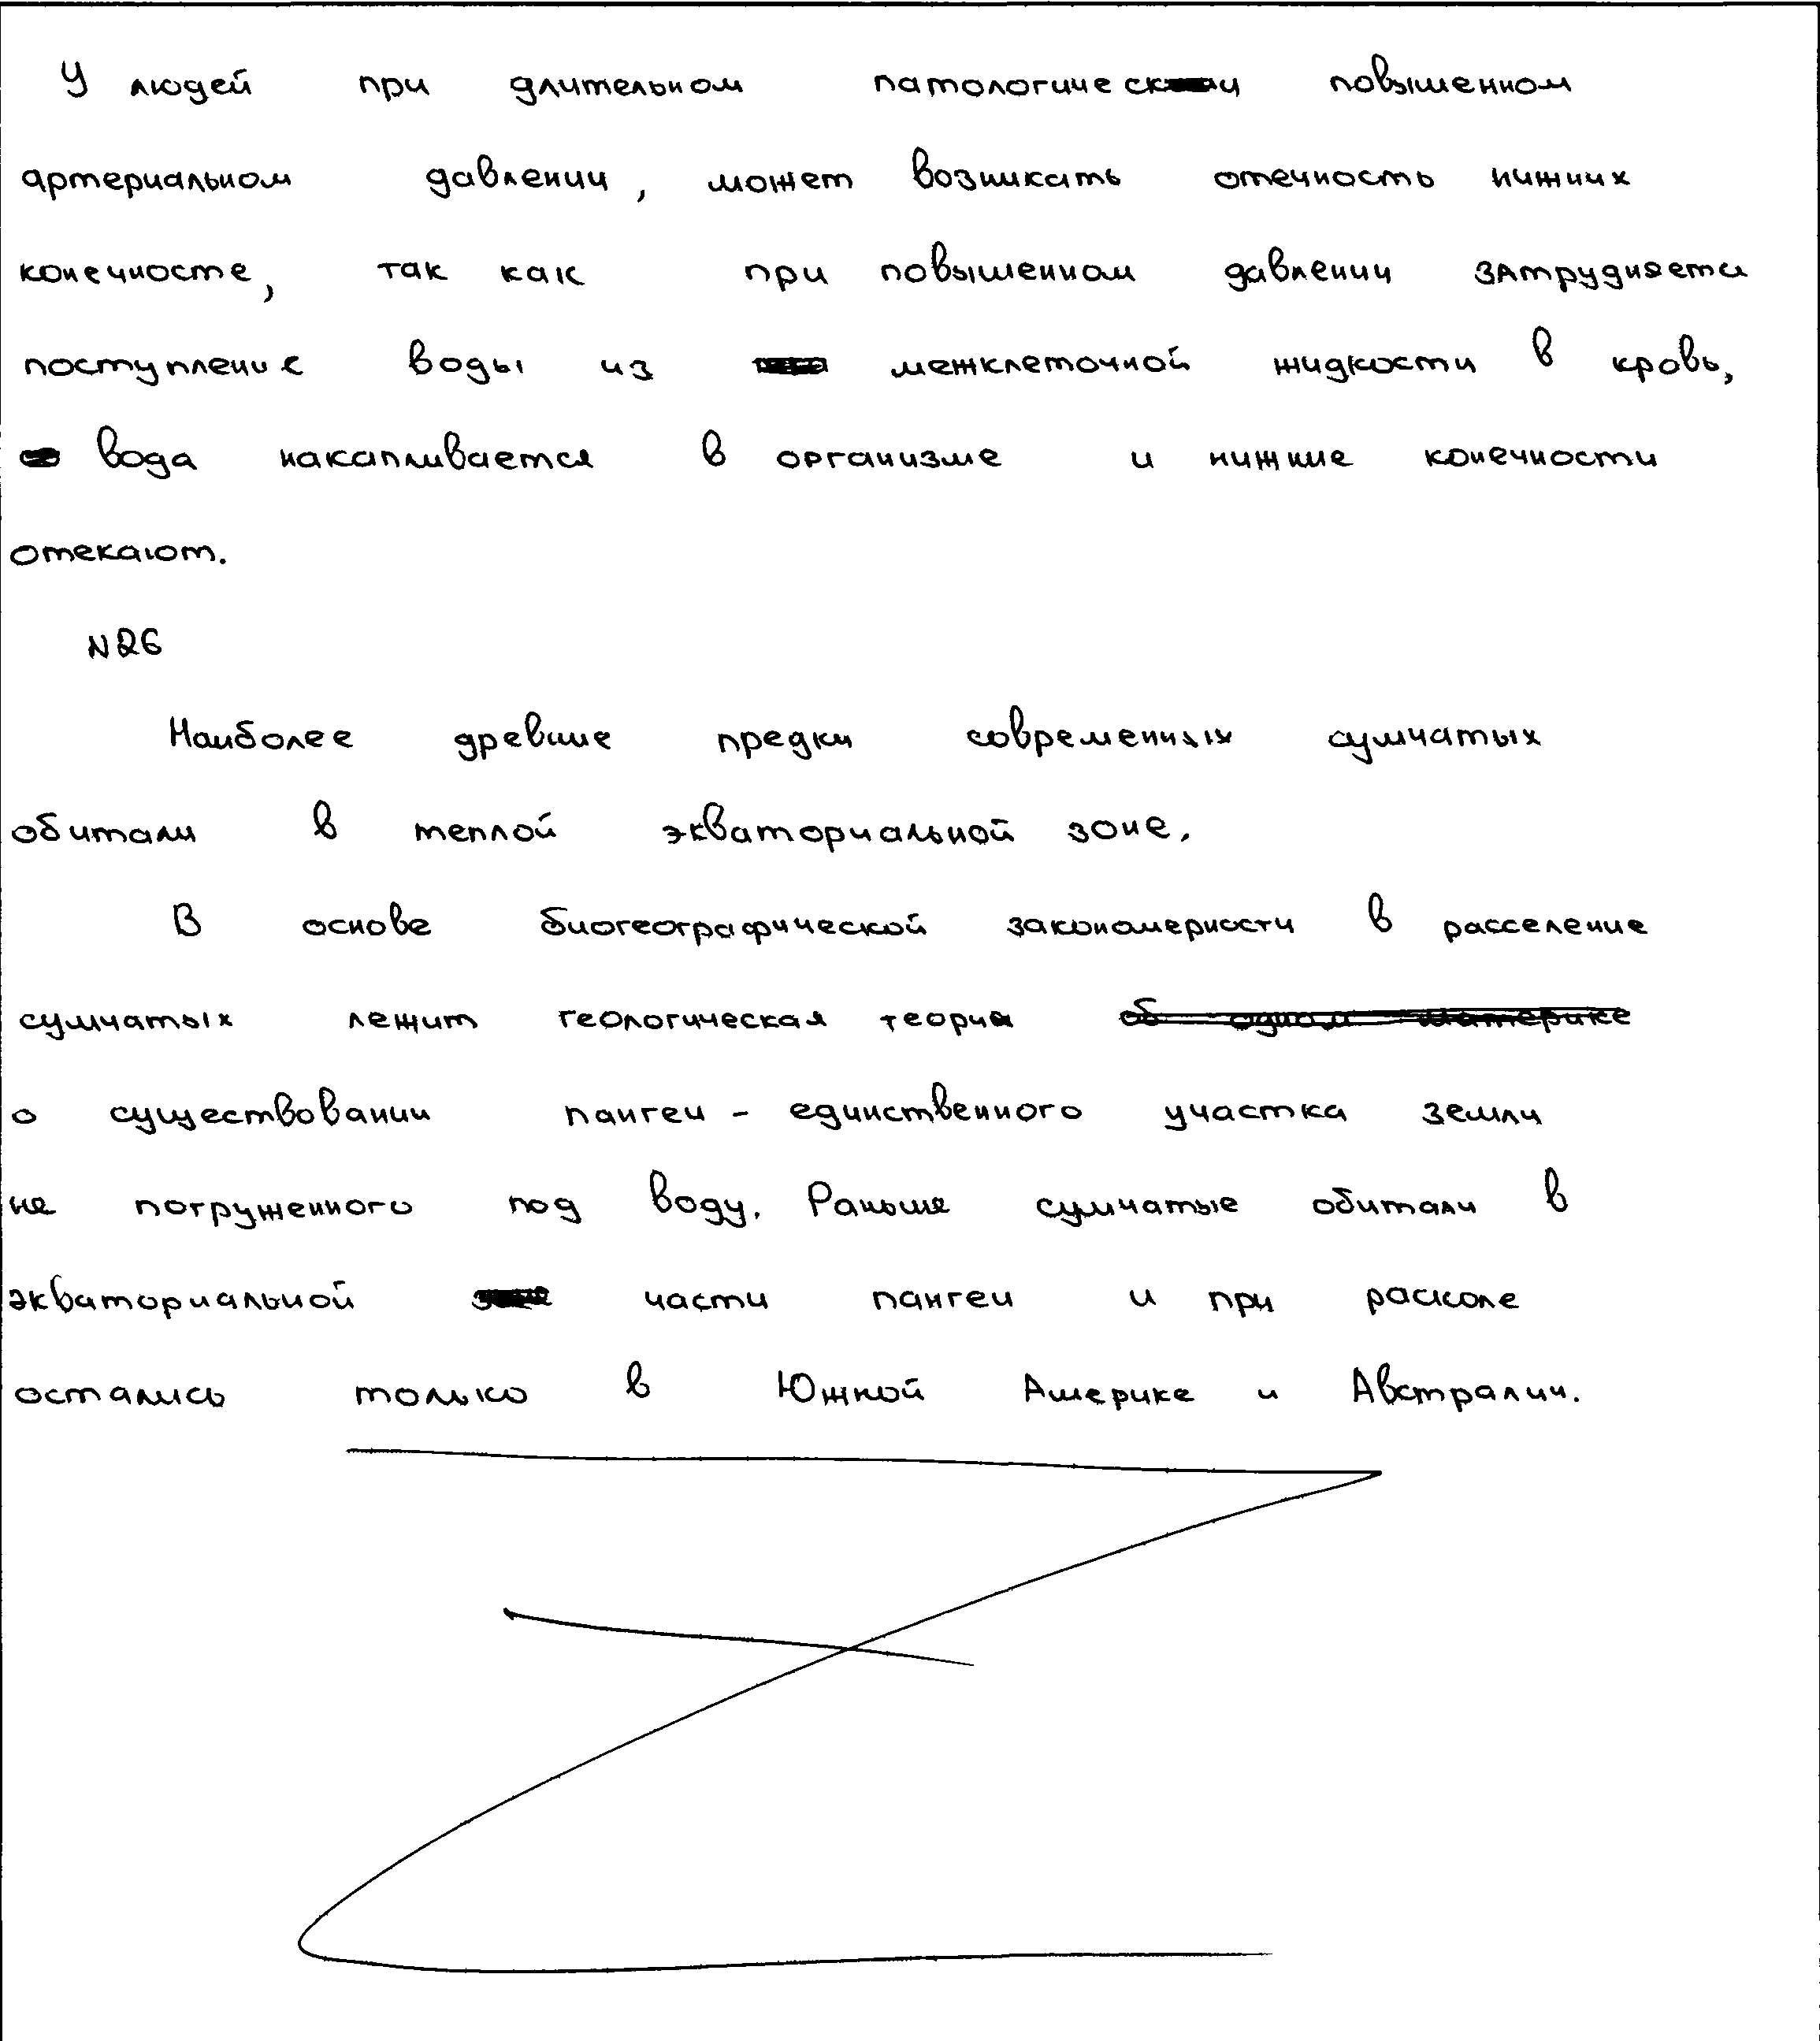 У людей при длительном патологически повышенном
артериальном давлении, может возникать отечность нижних
конечносте, так как при повышенном давлении затрудняется
поступление воды из межклеточной жидкости в кровь,
вода накапливается в организме и нижние конечности
отекают.
N26
Наиболее древние предки современных сумчатых
обитали в теплой экваториальной зоне.
В основе биогеографической закономерности в расселение
сумчатых лежит геологическая теория об одном материке
о существовании пангеи - единственного участка земли
не погруженного под воду. Раньше сумчатые обитали в
экваториальной части пангеи и при расколе
остались только в Южной Америке и Австралии.